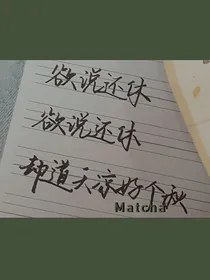 欲说还休
欲说还休
却道天凉好个秋
Matcha